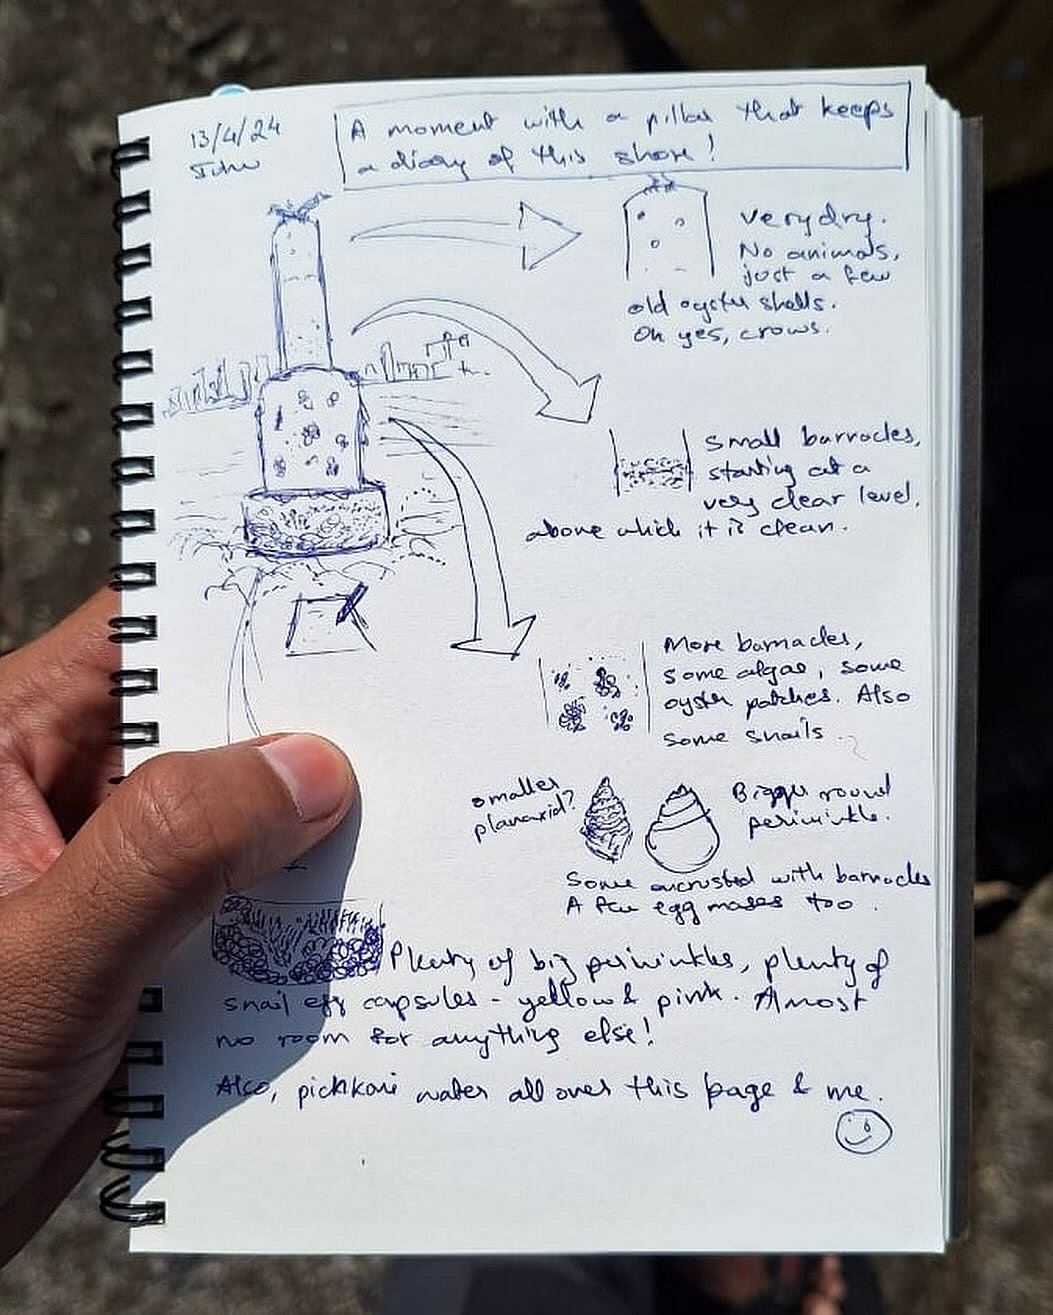 13/4/24
Juhu
A moment with a pillar that keeps
a diary of this shore!
very dry.
No animals,
just a few
old oyster shells.
Oh yes, crows.
Small barnacles,
starting at a
very clear level,
above which it is clean.
More barnacles,
some algae, some
oyster patches. Also
some snails.
smaller
planaxid?
Bigger round
periwinkle.
Some encrusted with barnacles
A few egg masses too.
Plenty of big periwinkles, plenty of
snail egg capsules - yellow & pink. Almost
no room for anything else!
Also, pichkari water all over this page & me.